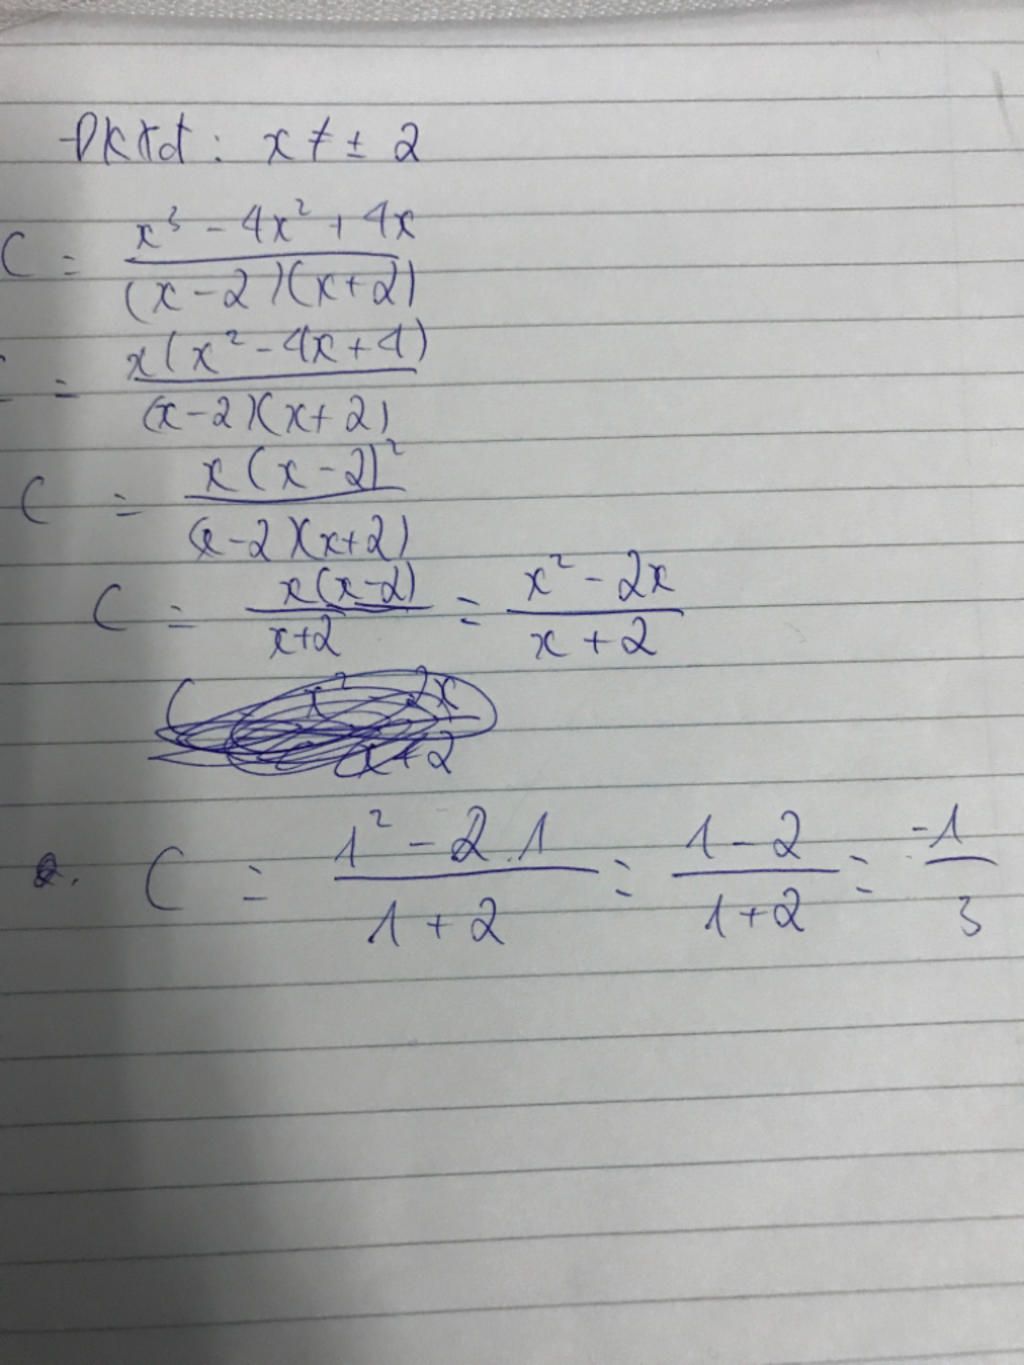 ĐKXĐ: x ≠ ± 2
C = (x³ - 4x² + 4x) / ((x-2)(x+2))
= x(x² - 4x + 4) / ((x-2)(x+2))
C = x(x-2)² / ((x-2)(x+2))
C = x(x-2) / (x+2) = (x² - 2x) / (x+2)
2. C = (1² - 2.1) / (1+2) = (1-2) / (1+2) = -1 / 3